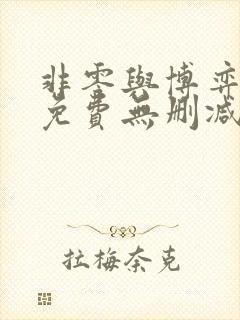 非零與博弈
免費無刪減
拉梅奈克